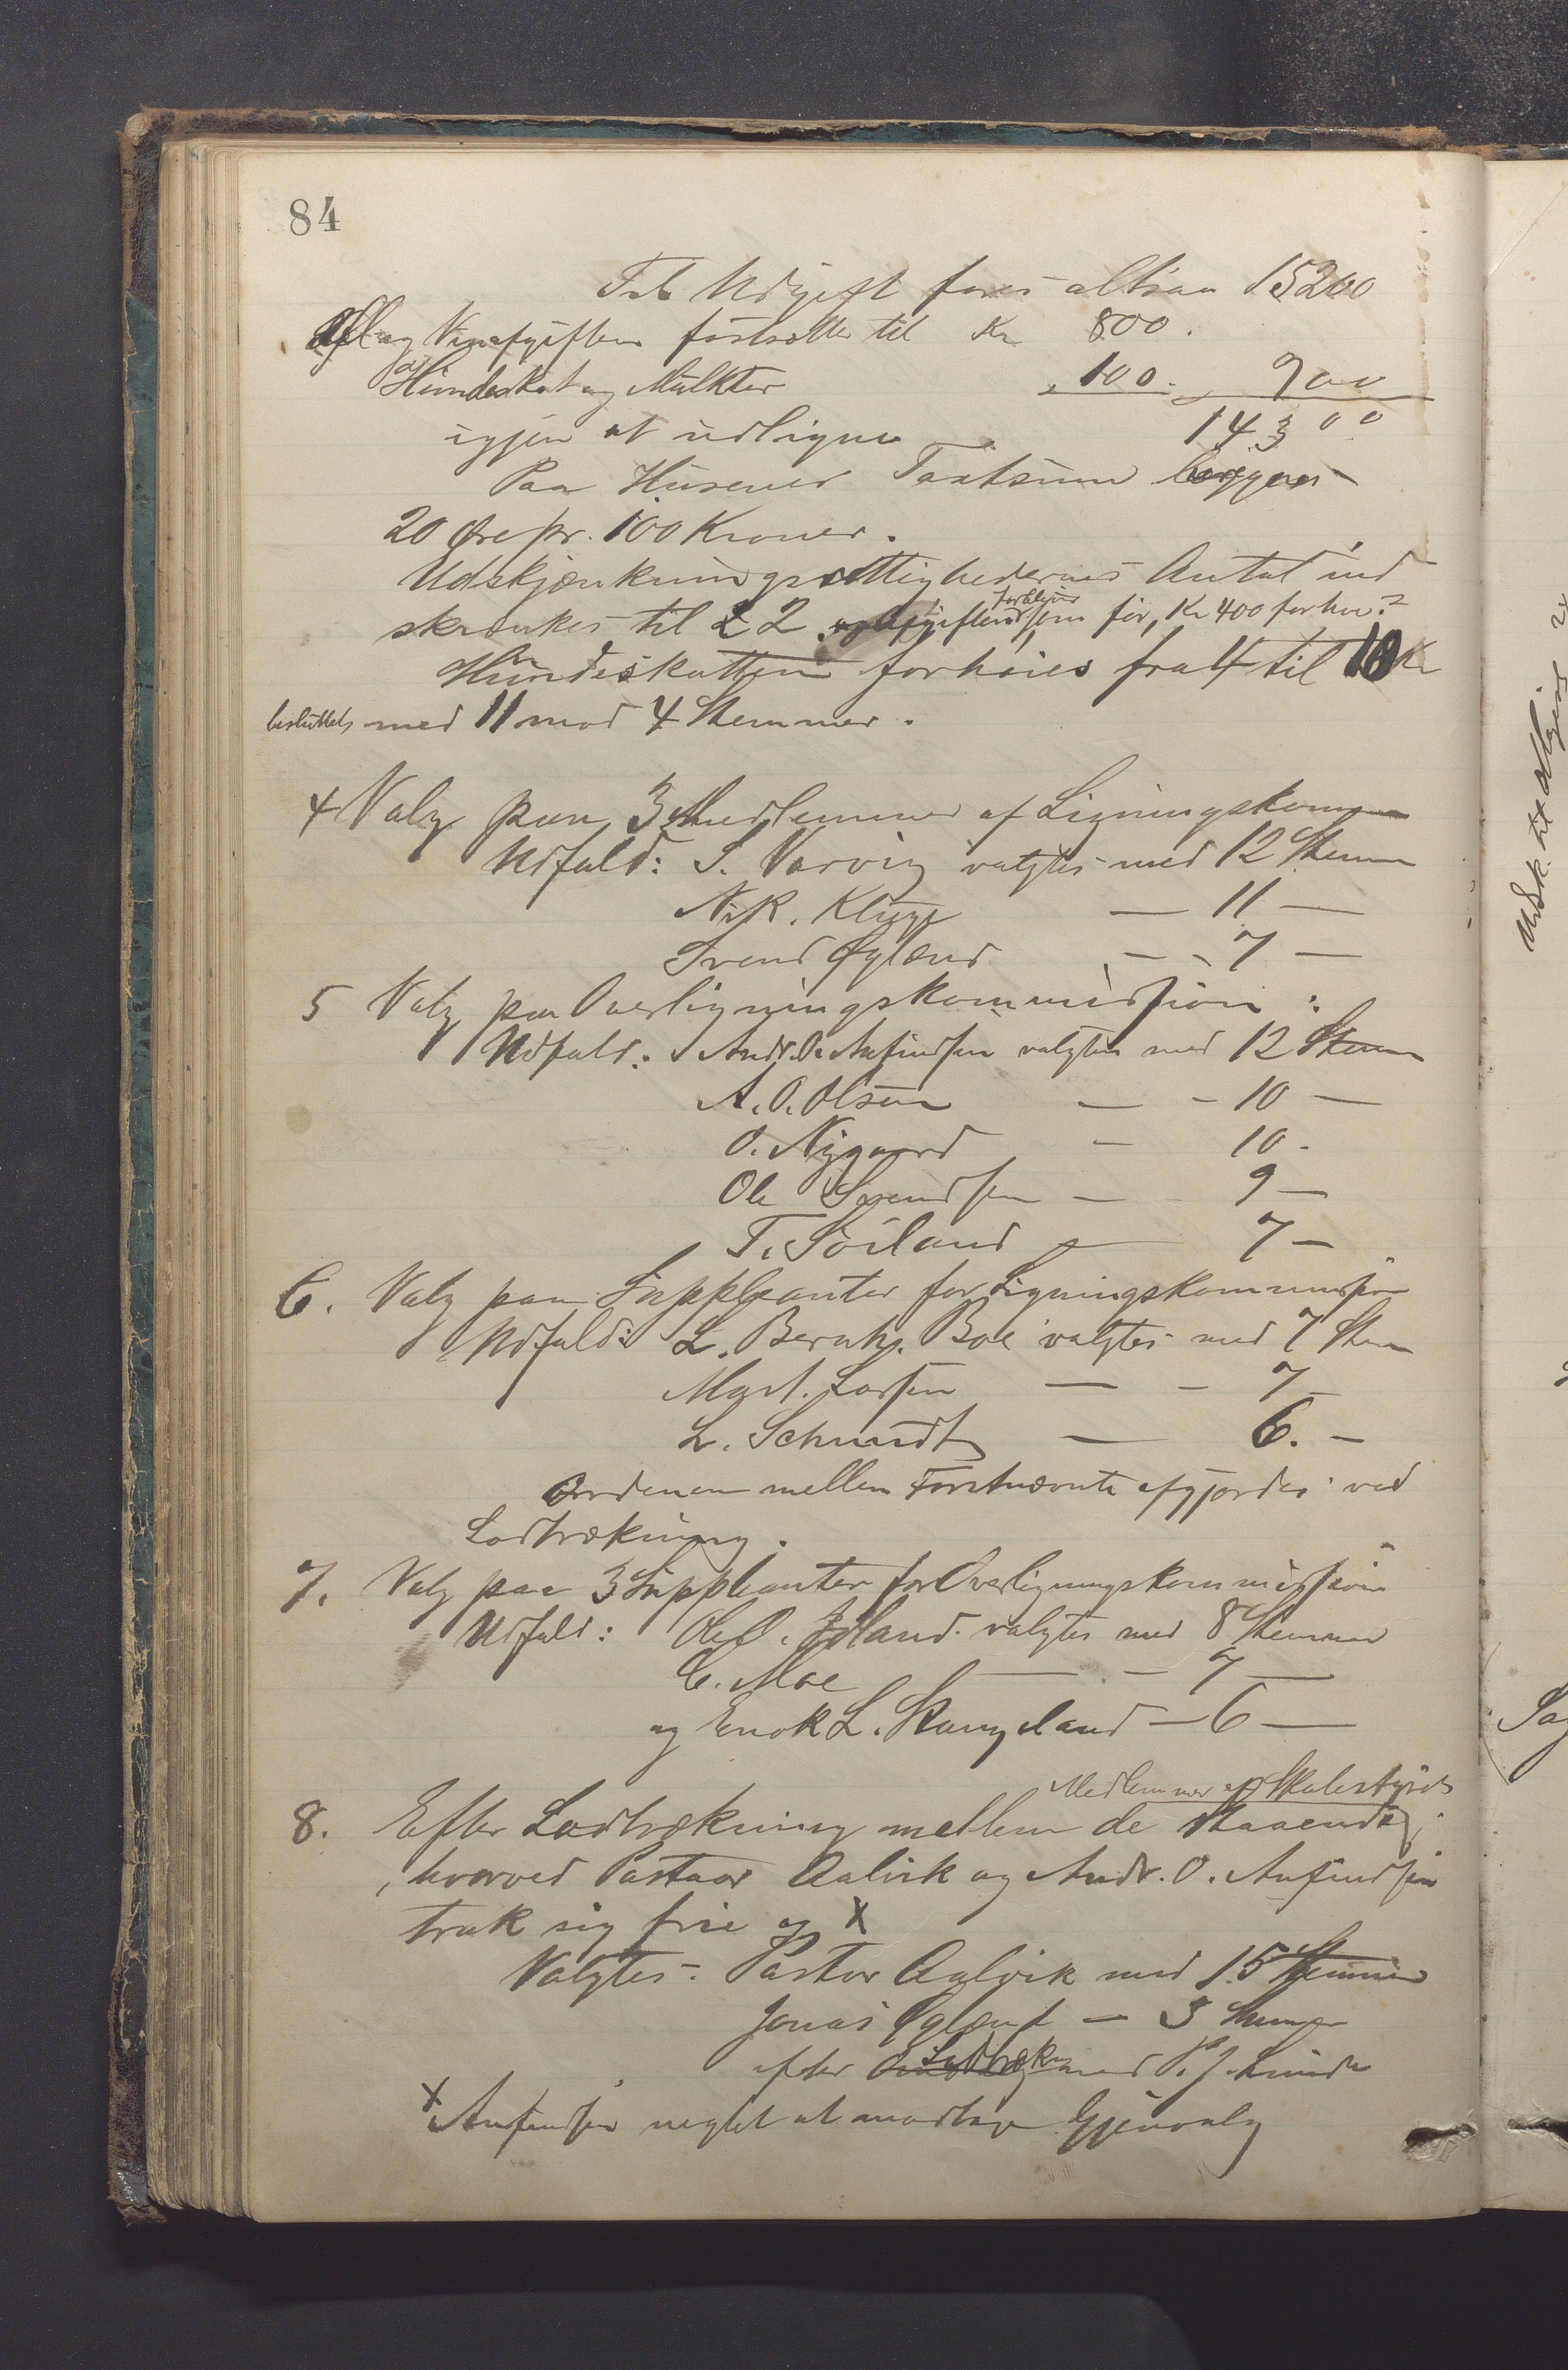 84
Til Udgift føres altsaa 15200
Øl og Vinafgiften fastsættes til Kr 800.
Hundeskat og Mulkter " 100. " 900
igjen at udligne 14300
Paa Husenes Taxtsum lægges
20 Øre pr. 100 Kroner.
Udskjænkningsrettighedernes Antal ind
skrænkes til 2 og Afgiften forbliver som før, Kr 400 for hver
Hundeskatten forhøies fra 4 til 10 Kr
besluttets med 11 mod 4 Stemmer.
4 Valg paa 3 Medlemmer af Ligningskom
Udfald: S. Varvig valgtes med 12 Stemm
Nik. Kluge — 11 —
Svend Øglænd — - 7 —
5 Valg paa Overligningskommission:
Udfald: Andr. O. Anfindsen valgtes med 12 Stemm
A. O. Olsen — - 10 —
O. Nygaard - 10 -
Ole Svendsen — 9 —
T. Soiland — 7 —
6. Valg paa Suppleanter for Ligningskommission
Udfald: L. Bernh. Boe valgtes med 7 Stem
Mart. Larsen — - 7 -
L. Schmidt — 6. —
Ordenen mellem Førstnævnte afgjordes ved
Lodtrækning.
7. Valg paa 3 Suppleanter for Overligningskommission
Udfald: Ole O. Idland valgtes med 8 Stemmer
C. Moe — - 7 —
og Enok L. Stangeland — 6 —
Medlemmer af Skolestyret
8. Efter Lodtrækning mellem de staaende
, hvorved Pastor Aalvik og Andr. O. Anfindsen
trak sig frie og X
Valgtes: Pastor Aalvik med 15 Stemmer
Jonas Øglænd — 5 Stemmer
efter Lodtrækn med P. J. Lunde
X Anfindsen neglet at modtage Gjenvalg
Udsk. til